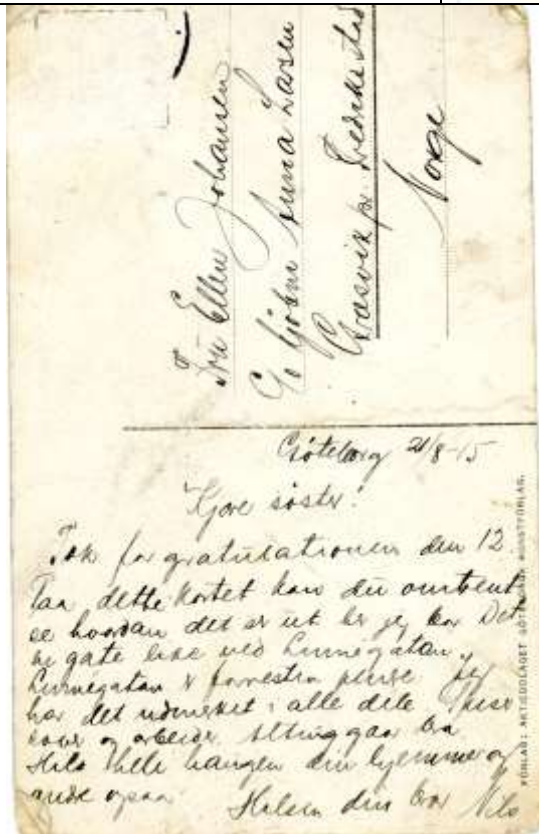 Fru Ellen Johansen
C/o Gjørin Anna Larsen
Græsvik pr. Fredrikstad
Norge
Göteborg 21/8-15
Kjære søster!
Tak for gratulationen den 12
Paa dette kortet kan du omtrent
se hvordan det er ut her jeg bor Det
er gate like ved Linnégatan
Linnégatan
har det udmerket i alle dele spiser
sover og arbeider Alting gaar bra
Hils hjemme og
andre ogsaa Hilsen din bror Nils
FÖRLAG: AKTIEBOLAGET GÖTEBORGS KONSTFÖRLAG.